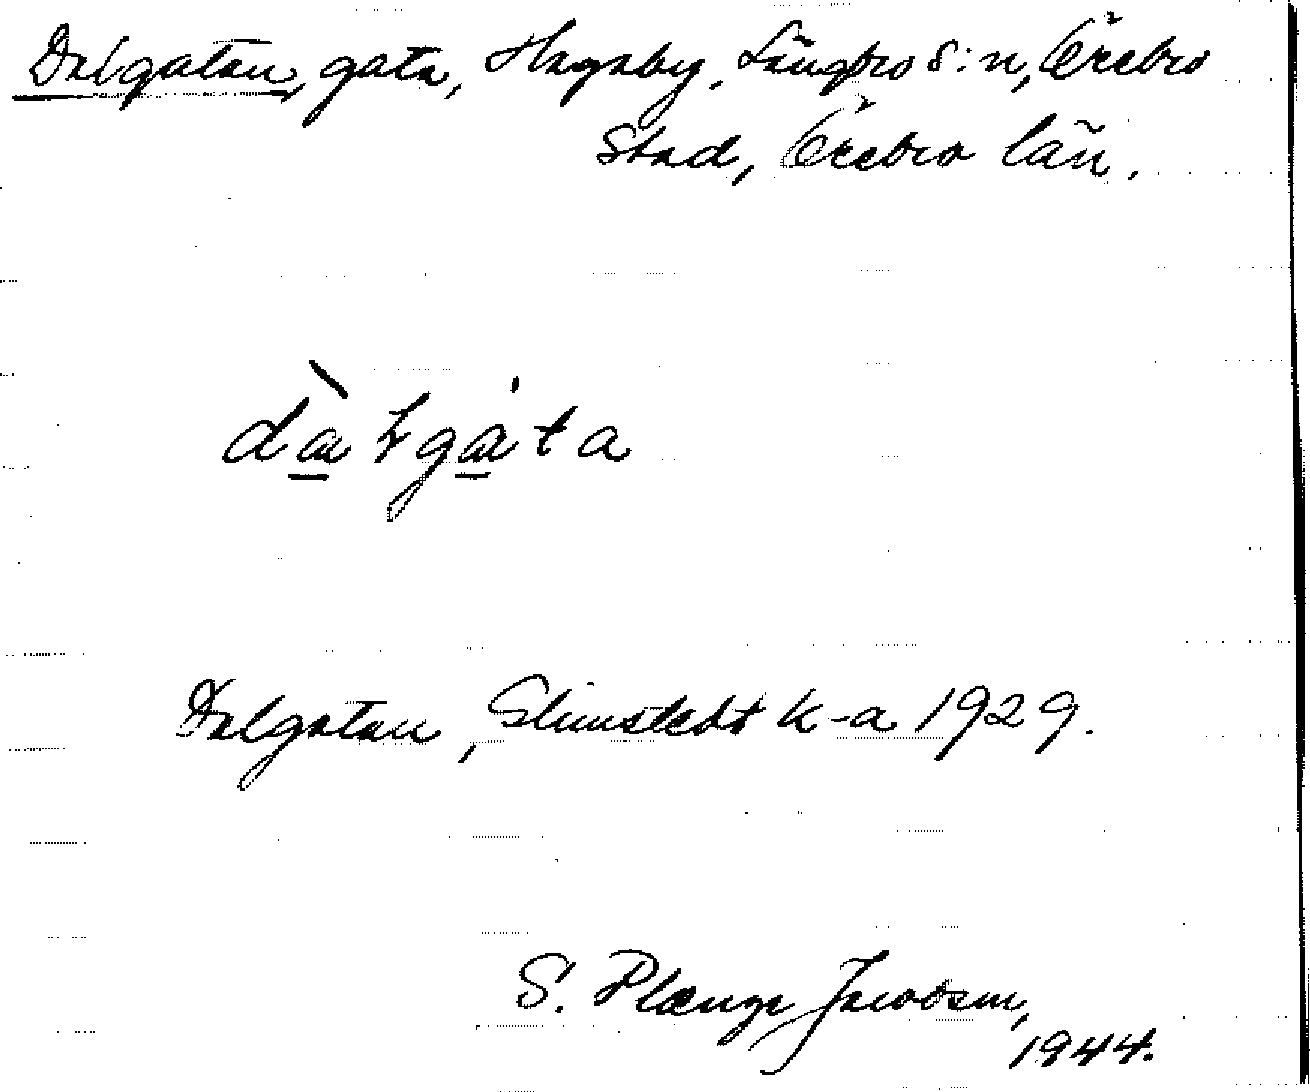 Dalgatan, gata, Hagaby, Längbro s:n, Örebro
stad, Örebro län.
dàlgáta
Dalgatan, Glimstedt k-a 1929.
S. Plænge Jacobson,
1944.